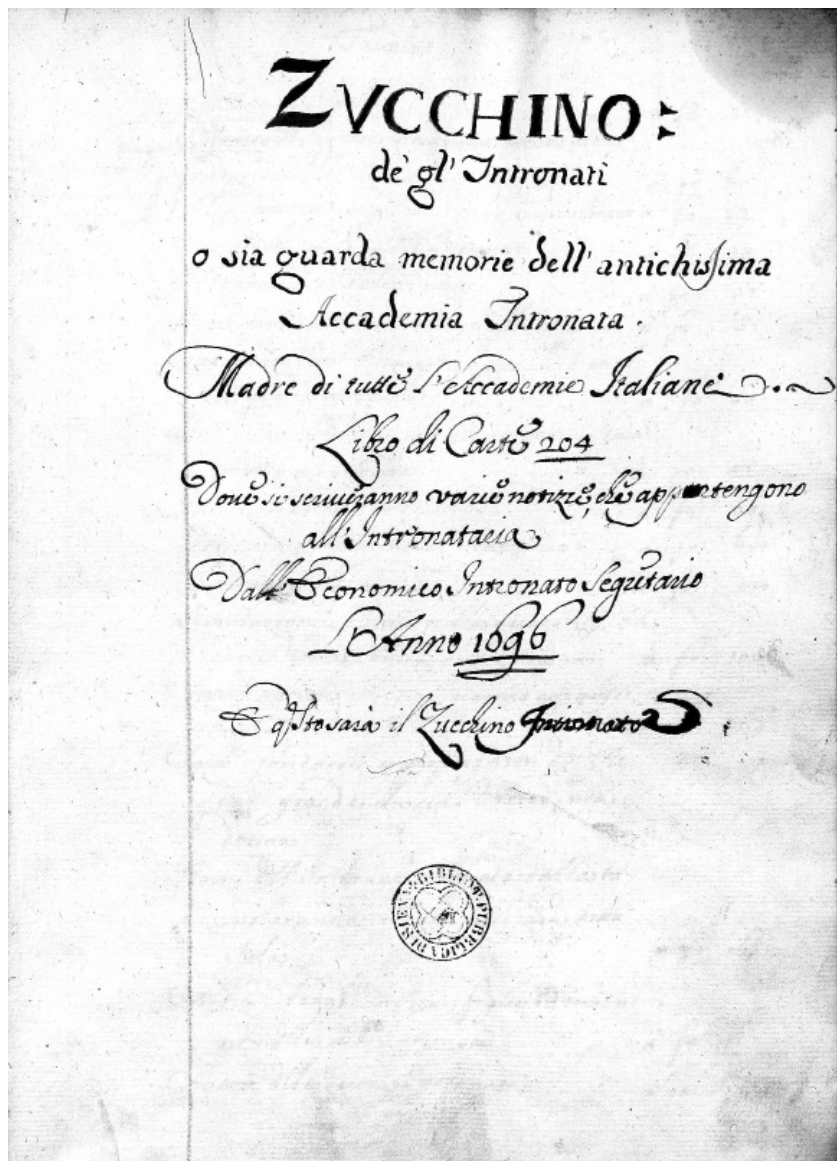 ZVCCHINO:
de' gl' Intronati
o sia guarda memorie dell' antichissima
Accademia Intronata.
Madre di tutte l'Accademie Italiane.
Libro di Carte 204
Dove si scriveranno varie notizie, che appartengono
all'Intronataria
Dall' Economico Intronato Segretario
L'Anno 1696
E qsto sarà il Zucchino Intronato
BIBLIOT. PUBBLICA DI SIENA